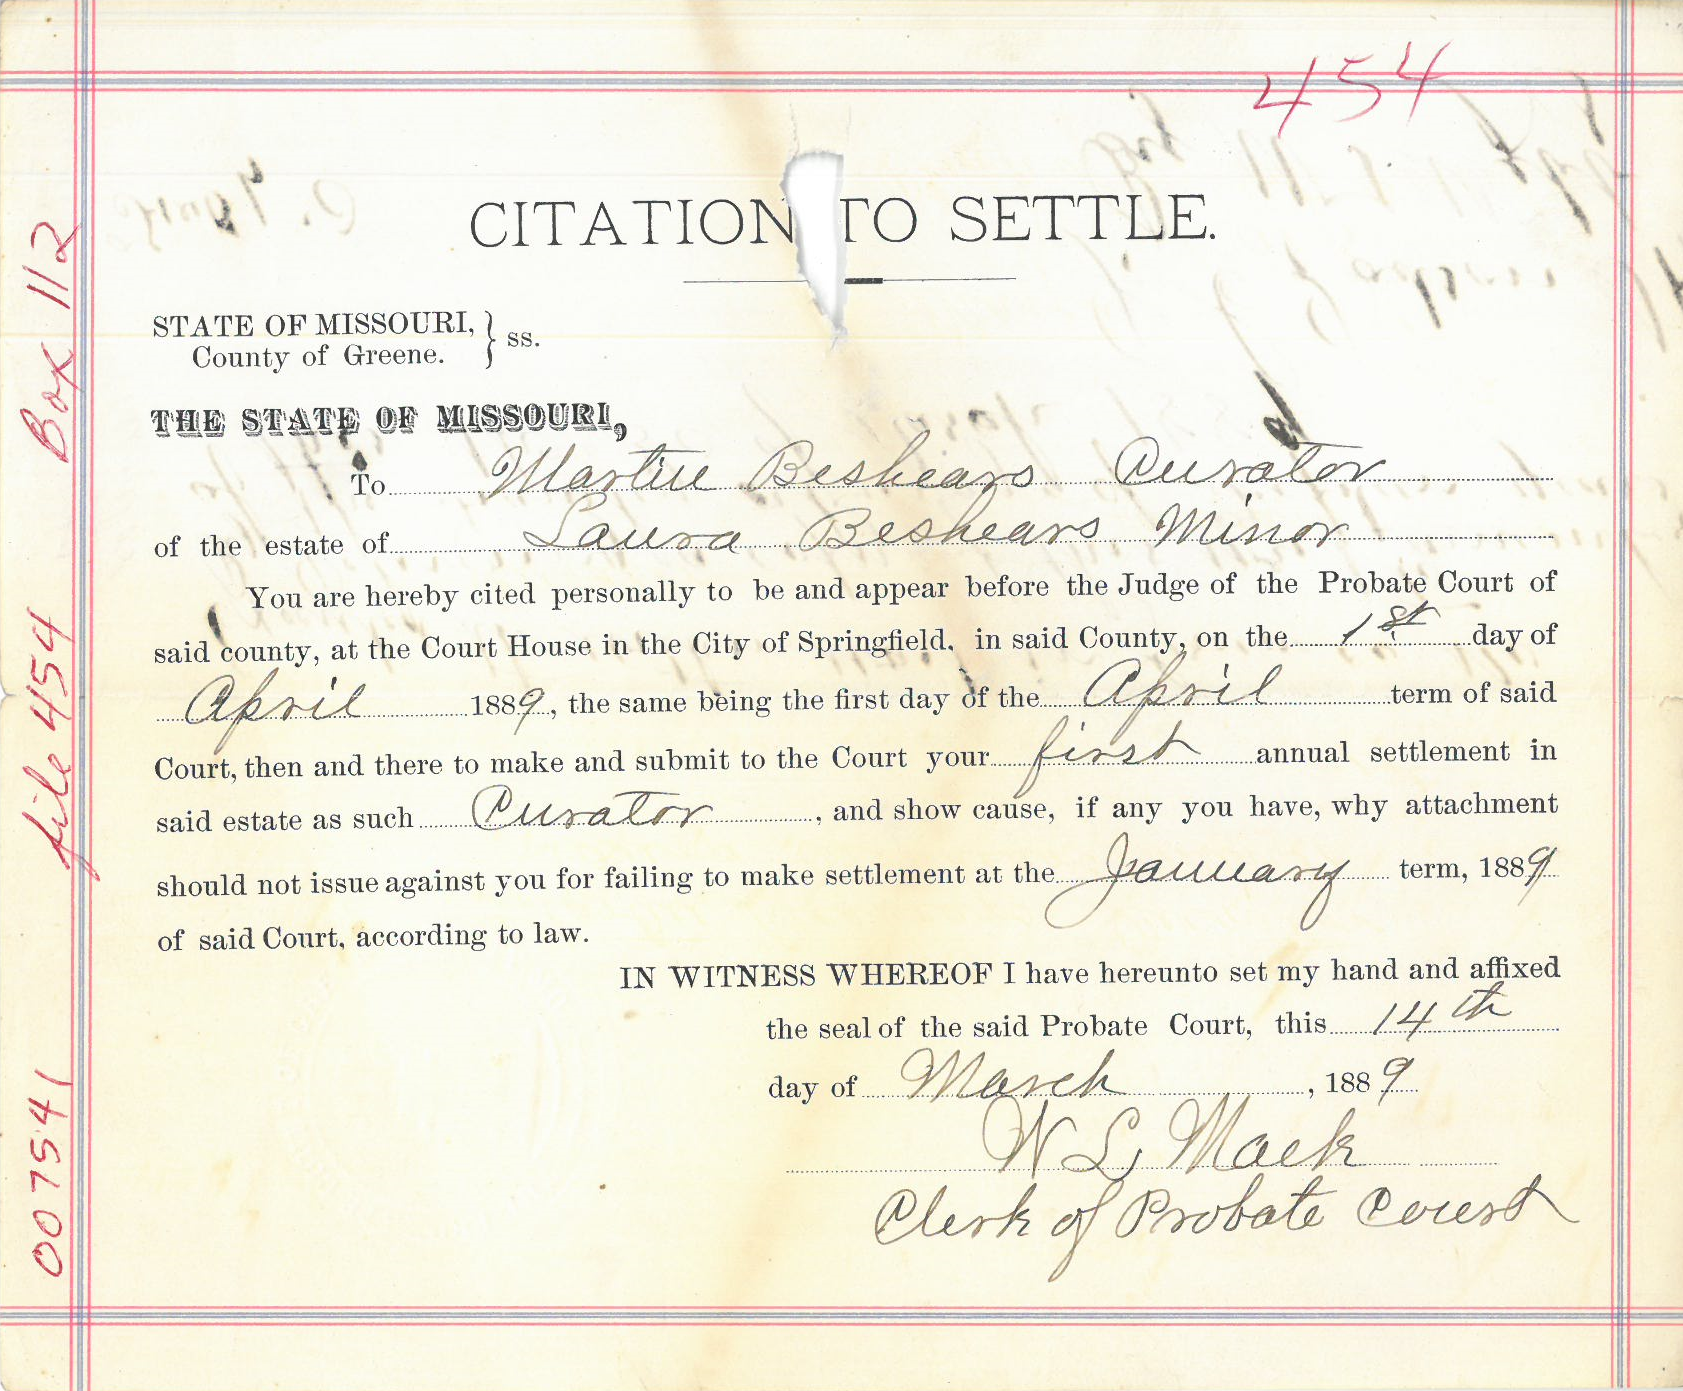 454
CITATION TO SETTLE.
STATE OF MISSOURI, } ss.
County of Greene.
THE STATE OF MISSOURI,
To Martin Beshears Curator
of the estate of Laura Beshears Minor
You are hereby cited personally to be and appear before the Judge of the Probate Court of
said county, at the Court House in the City of Springfield, in said County, on the 1st day of
April 1889, the same being the first day of the April term of said
Court, then and there to make and submit to the Court your first annual settlement in
said estate as such Curator, and show cause, if any you have, why attachment
should not issue against you for failing to make settlement at the January term, 1889
of said Court, according to law.
IN WITNESS WHEREOF I have hereunto set my hand and affixed
the seal of the said Probate Court, this 14th
day of March, 1889
W L Mack
Clerk of Probate Court
007541 file 454 Box 112